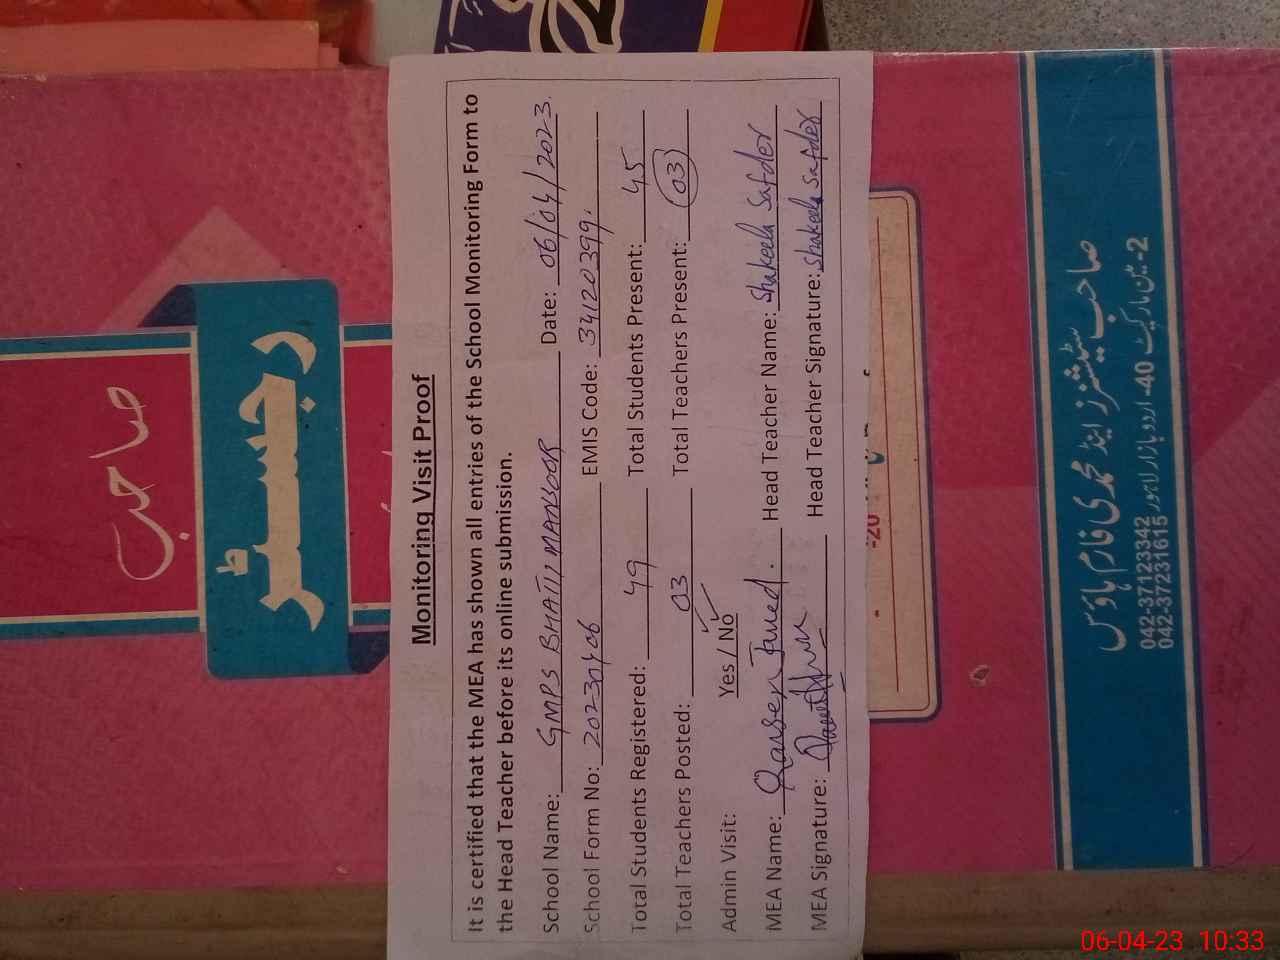 Monitoring Visit Proof
It is certified that the MEA has shown all entries of the School Monitoring Form to
the Head Teacher before its online submission.
School Name: GMPS BHATTI MANSOOR Date: 06/04/2023.
School Form No: 20230406 EMIS Code: 34120399.
Total Students Registered: 49 Total Students Present: 45
Total Teachers Posted: 03 Total Teachers Present: 03
Admin Visit: Yes / No ✓
MEA Name: Javed. Head Teacher Name: Shakeela Safder
MEA Signature: Head Teacher Signature: Shakeela Safder
صاحب
رجسٹر
-20
صاحب سٹیشنرز اینڈ محمدی فارم ہاؤس
2-مین مارکیٹ 40-اردو بازار لاہور
042-37123342
042-37231615
06-04-23 10:33